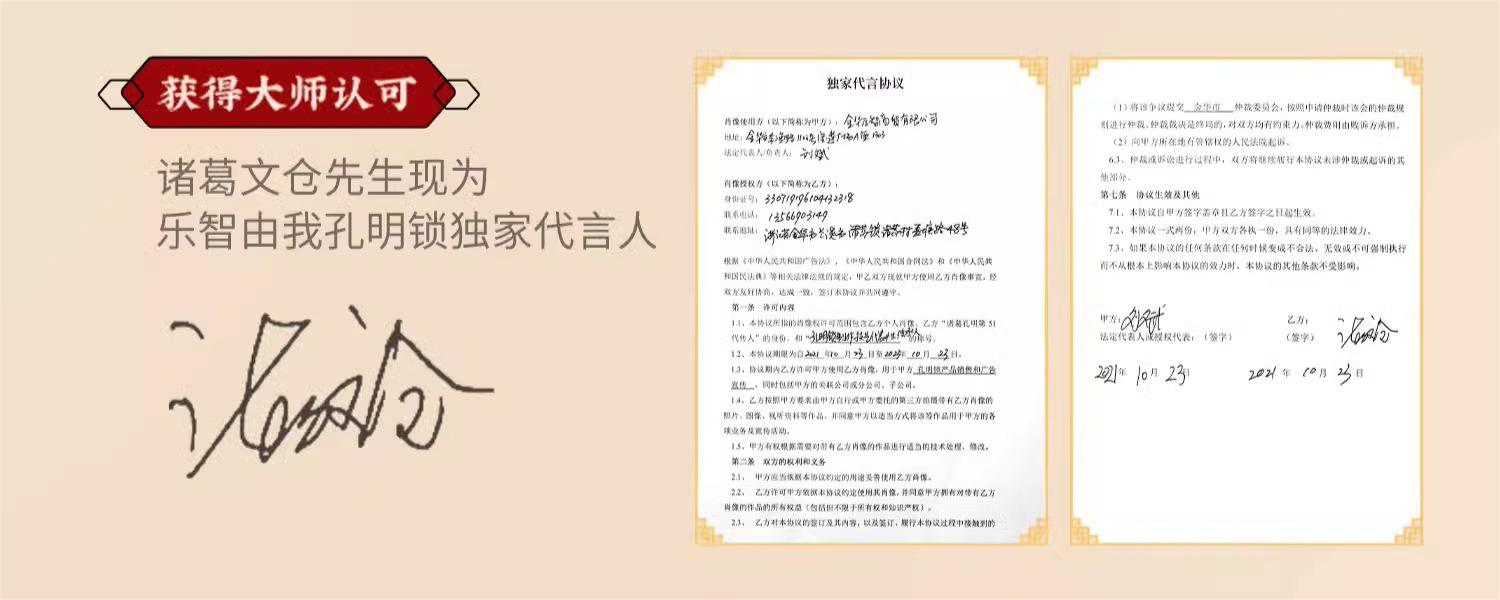 获得大师认可
诸葛文仓先生现为
乐智由我孔明锁独家代言人
独家代言协议
肖像使用方（以下简称为甲方）：金华乐智商贸有限公司
地址：
法定代表人/负责人：刘斌
肖像授权方（以下简称为乙方）：
身份证号：330719196104132318
联系电话：13566903149
联系地址：浙江省金华市兰溪市诸葛镇诸葛村孟塘路48号
根据《中华人民共和国广告法》、《中华人民共和国合同法》和《中华人民共
和国民法典》等相关法律法规的规定，甲乙双方现就甲方使用乙方肖像事宜，经
双方友好协商，达成一致，签订本协议并共同遵守。
第一条 许可内容
1.1、本协议所指的肖像权许可范围包含乙方个人肖像、乙方“诸葛孔明第 51
代传人”的身份，和“ 的称号。
1.2、本协议期限为自2021 年10 月 23 日至2025年 10 月 23 日。
1.3、协议期内乙方许可甲方使用乙方肖像，用于甲方 孔明锁产品销售和广告
宣传 ，同时包括甲方的关联公司或分公司、子公司。
1.4、乙方按照甲方要求由甲方自行或甲方委托的第三方拍摄带有乙方肖像的
照片、图像、视听资料等作品，并同意甲方以适当方式将该等作品用于甲方的各
项业务及宣传活动。
1.5、甲方有权根据需要对带有乙方肖像的作品进行适当的技术处理、修改。
第二条 双方的权利和义务
2.1、 甲方应当依据本协议约定的用途妥善使用乙方肖像。
2.2、 乙方许可甲方依据本协议约定使用其肖像，并同意甲方拥有对带有乙方
肖像的作品的所有权益（包括但不限于所有权和知识产权）。
2.3、 乙方对本协议的签订及其内容，以及签订、履行本协议过程中接触到的
（1）将该争议提交 金华市 仲裁委员会，按照申请仲裁时该会的仲裁规
则进行仲裁。仲裁裁决是终局的，对双方均有约束力。仲裁费用由败诉方承担。
（2）向甲方所在地有管辖权的人民法院起诉。
6.3、仲裁或诉讼进行过程中，双方将继续履行本协议未涉仲裁或起诉的其
他部分。
第七条 协议生效及其他
7.1、本协议自甲方签字盖章且乙方签字之日起生效。
7.2、本协议一式两份，甲方双方各执一份，具有同等的法律效力。
7.3、如果本协议的任何条款在任何时候变成不合法、无效或不可强制执行
而不从根本上影响本协议的效力时，本协议的其他条款不受影响。
甲方：刘斌 乙方：
法定代表人或授权代表：（签字） （签字）
2021年 10月 23日 2021 年 10 月 23 日